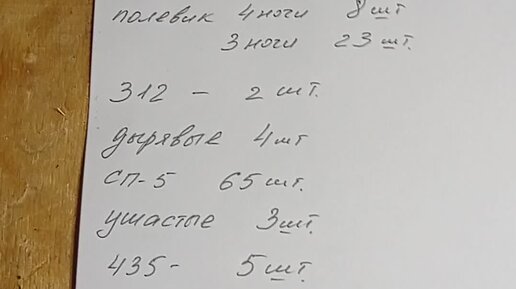 полевик 4 ноги 8 шт
3 ноги 23 шт.
312 - 2 шт.
дырявые 4 шт
СП-5 65 шт.
ушастые 3 шт.
435 - 5 шт.